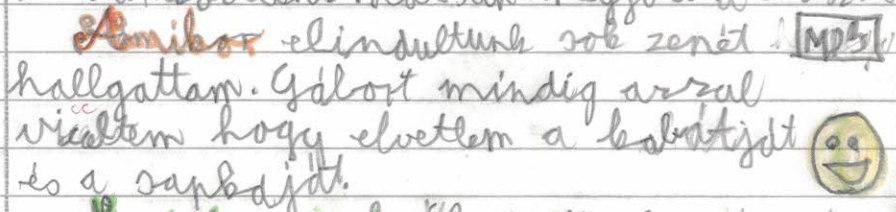 Amikor elindultunk sok zenét MP3
hallgattam. Gábort mindig azzal
vicceltem hogy elvettem a kabátját
és a sapkáját.